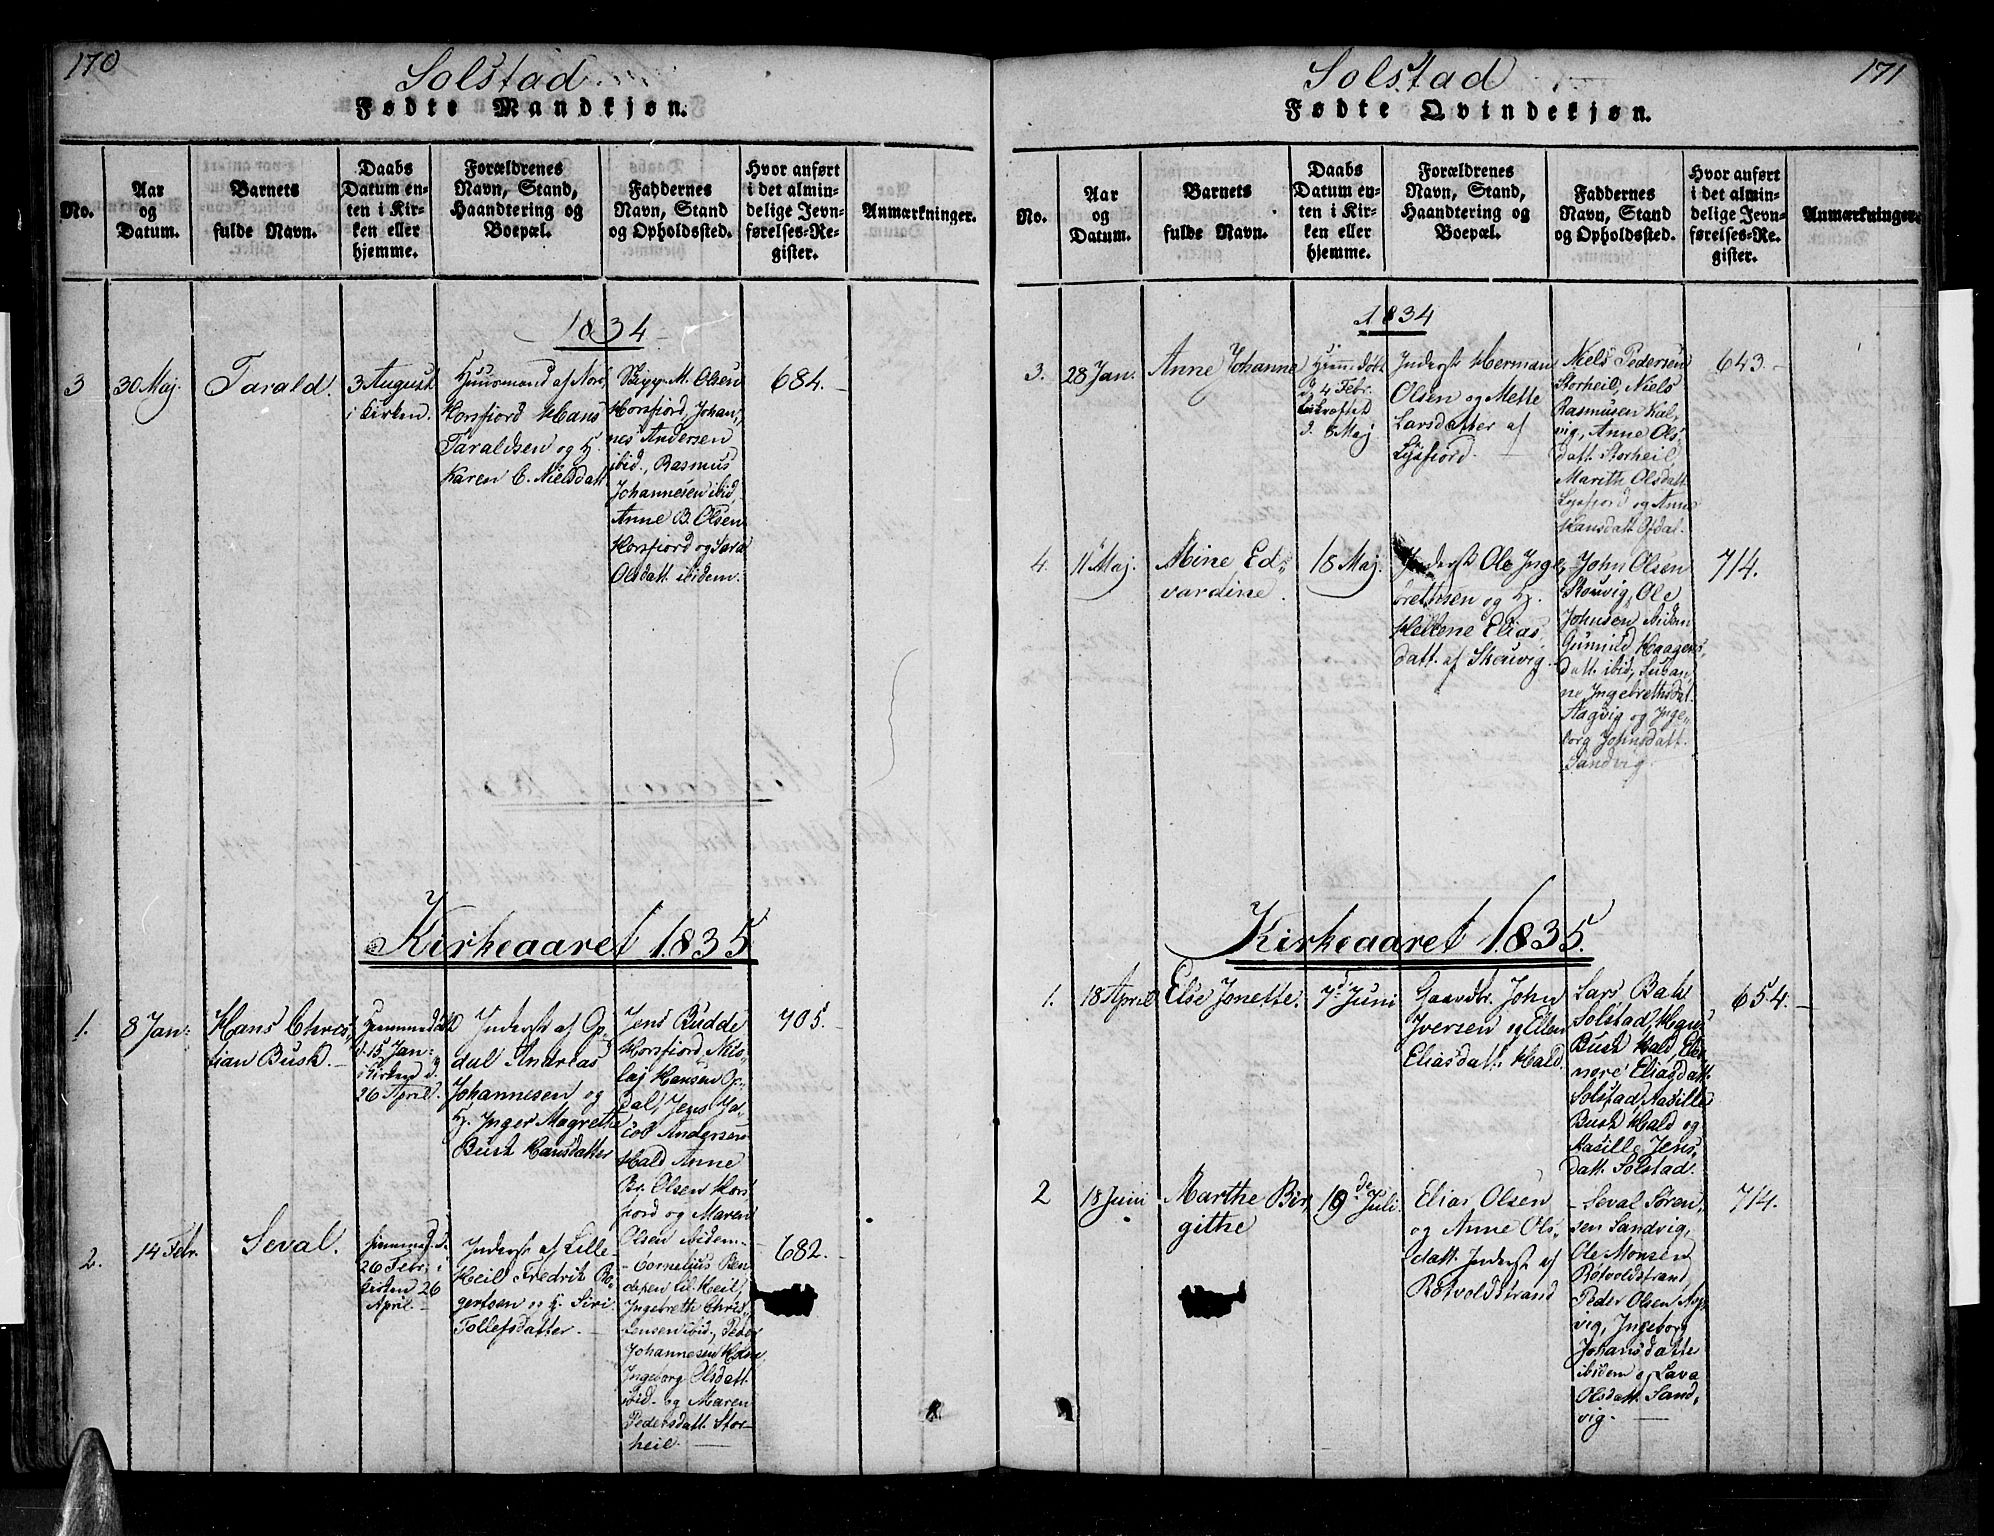 170
Solstad
Fødte Mandkjøn.
No.
Aar
og
Datum.
Barnets
fulde Navn.
Daabs
Datum en-
ten i Kir-
ken eller
hjemme.
Forældrenes
Navn, Stand,
Haandtering og
Boepæl.
Faddernes
Navn, Stand
og Opholdssted.
Hvor anført
i det almin-
delige Jevn-
førelses-Re-
gister.
Anmærkninger.
1834
3
30 Maj.
Tarald.
3 August
i Kirken.
Huusmand af Nord
Horsfjord Hans
Taraldsen og H.
Karen C. Nielsdatt
Skipp M. Olsen
Horsfjord, Johan,
nes Andersen
ibid., Rasmus
Johannesen ibid,
Anne B. Olsen
Horsfjord og Sara
Olsdatt. ibidem.
684.
Kirkeaaret 1835
1.
8 Jan
Hans Chris
tian Bush.
Hjemmedøbt
d. 15 Jan
i Kirken d.
26 April.
Inderst af Op
dal Andreas
Johannesen og
H. Inger Magrethe
Bush Hansdatter
Jens Budde
Horsfjord, Nils
laj Hansen Op
dal, Jens Ja
cob Andersen
Hald Anne
Br. Olsen Hors
fjord og Maren
Olsen ibidem
705.
2.
14 Febr.
Seval.
hjemme d.
26 Febr. i
Kirken 26
April
Inderst af Lille
Heil Fredrik Bo,
gertsen og H. Siri
Tollefsdatter.
Cornelius Ben
depen lil. Heil,
Ingebrethe Chris,
tensen ibid., Peder
Johannesen
Ingeborg Olsdatt.
ibid. og Maren
Pedersdatt. Stor-
heil.
682.
171
Solstad
Fødte Qvindekjøn.
No.
Aar
og
Datum.
Barnets
fulde Navn.
Daabs
Datum en-
ten i Kir-
ken eller
hjemme.
Forældrenes
Navn, Stand,
Haandtering og
Boepæl.
Faddernes
Navn, Stand
og Opholdssted.
Hvor anført
i det almin-
delige Jevn-
førelses-Re-
gister.
Anmærkninger.
1834
3.
28 Jan.
Anne Johanne
Hjemmedøbt
d. 4 Febr.
d. 8 Maj
Inderst Herman
Olsen og Mette
Larsdatter af
Lysfjord.
Niels Pedersen
Storheil, Niels
Rasmusen Kal,
vig, Anne Ols,
datt. Storheil,
Marith Olsdatt.
Lysfjord og Anne
Hansdatt. Ofdal.
643.
4.
11 Maj.
Mine Ed,
vardine.
18 Maj.
Inderst Ole Inge,
brethsen og H.
Hellene Elias,
datt. af Skouvig.
John Olsen
Skouvig, Ole
Johnsen ibidem
Gunnild Haagens,
datt. ibid, Susan,
ne Ingebrethsdat.
Aagvig og Inge,
borg Johnsdatt.
Sandvig.
714.
Kirkeaaret 1835.
1.
18 April
Else Jonette.
7de Juni
Gaardbr. John
Iversen og Ellen
Eliasdatt. Hald.
Lars Bak
Solstad,
Bush Hald, Ele
nore Eliasdatt.
Solstad,
Bush Hald og
Jens,
datt. Solstad.
654.
2
18 Juni
Marthe Bir,
githe
19de Juli.
Elias Olsen
og Anne Ols,
datt. Inderst af
Røtvoldstrand
Seval Søren,
sen Sandvig,
Ole Monsen
Røtvoldstrand
Peder Olsen
vig, Ingeborg
Johansdatte
ibidem og Lava
Olsdatt. Sand,
vig.
714.